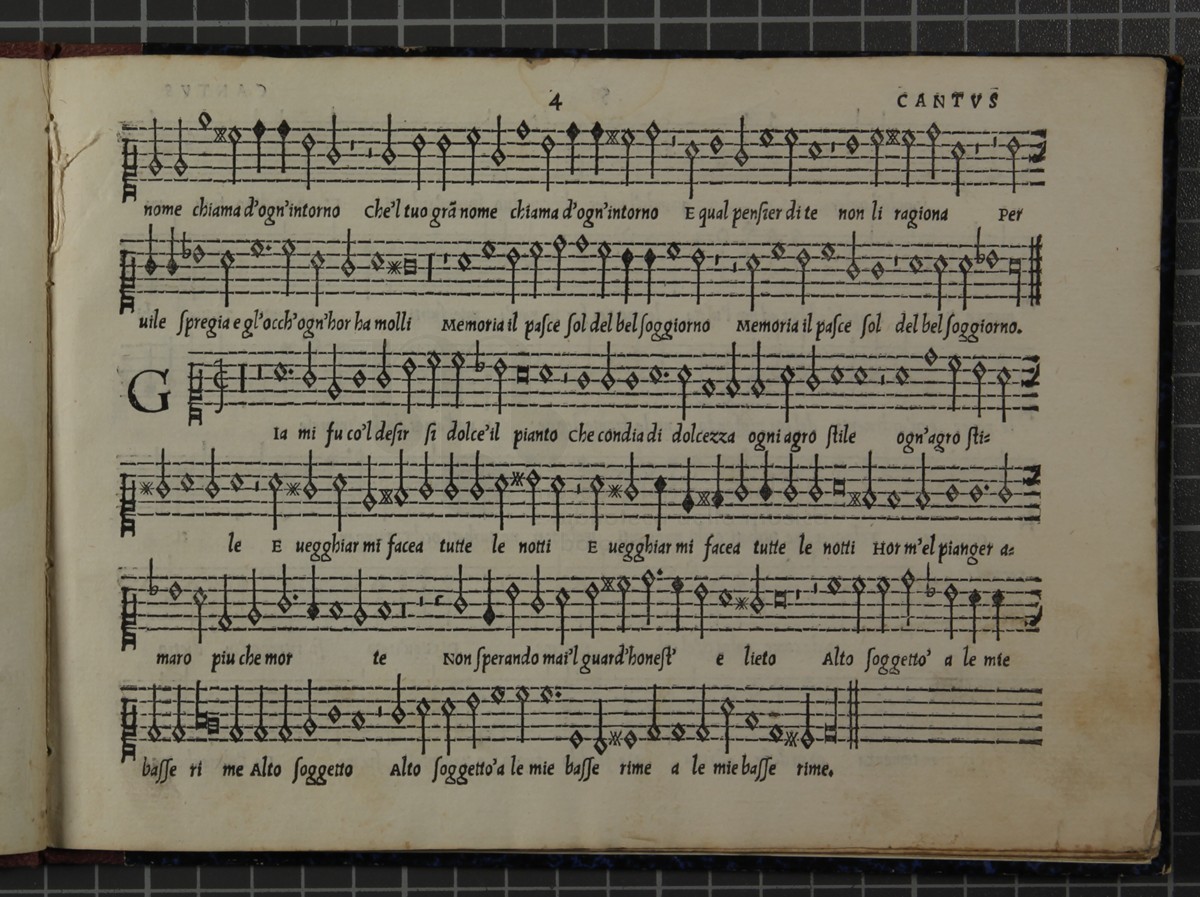 4
CANTVS
nome chiama d'ogn'intorno Che'l tuo grã nome chiama d'ogn'intorno E qual penſier di te non li ragiona Per
uile ſpregia e gl'occh'ogn'hor ha molli Memoria il paſce ſol del bel ſoggiorno Memoria il paſce ſol del bel ſoggiorno.
G
Ia mi fu co'l deſir ſi dolce'il pianto Che condia di dolcezza ogni agro ſtile ogn'agro ſti=
le E uegghiar mi facea tutte le notti E uegghiar mi facea tutte le notti Hor m'el pianger a=
maro piu che mor te Non ſperando mai'l guard'honeſt' e lieto Alto ſoggetto' a le mie
baſſe ri me Alto ſoggetto Alto ſoggetto'a le mie baſſe rime a le mie baſſe rime.